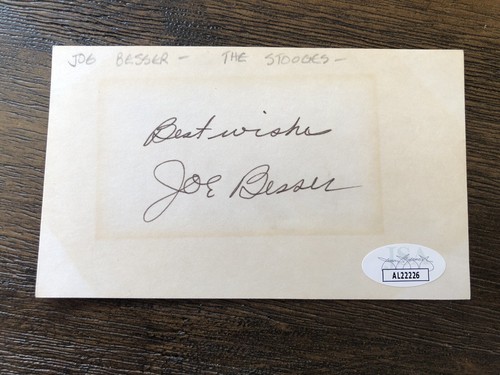 JOE BESSER - THE STOOGES -
Best wishes
Joe Besser
JSA
AL22226